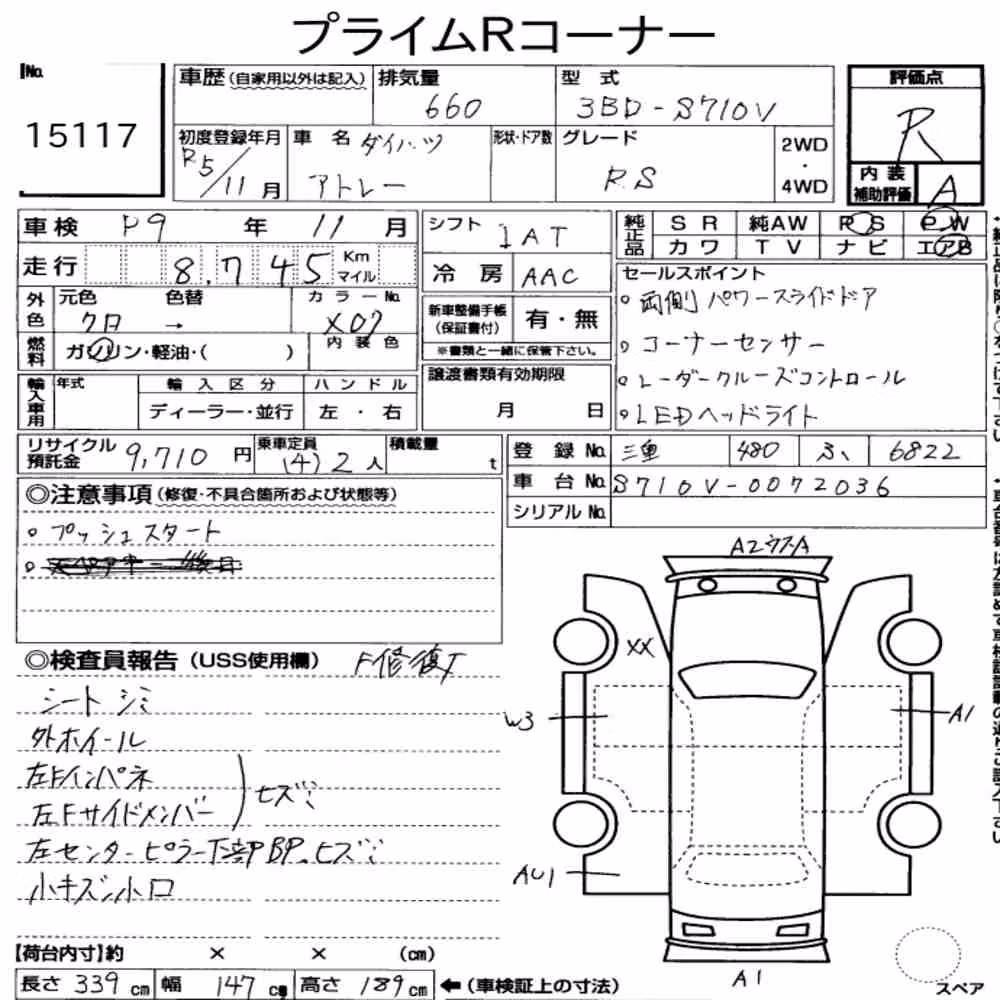 プライムRコーナー
No. 15117
車歴 (自家用以外は記入) 排気量 660 型式 3BD-S710V 評価点 R
初度登録年月 R5/11月 車名 ダイハツ アトレー 形状・ドア数 グレード RS 2WD・4WD 内装補助評価 A
車検 R9年 11月 シフト IAT 純正品 SR 純AW PS PW
カワ TV ナビ エアB
走行 8,745 Km マイル 冷房 AAC
外色 元色 クロ 色替 → カラーNo. X07
燃料 ガソリン・軽油・( ) 内装色
新車整備手帳(保証書付) 有・無
※書類と一緒に保管下さい。
セールスポイント
。両側パワースライドドア
。コーナーセンサー
。レーダークルーズコントロール
。LEDヘッドライト
輸入車用 年式 輸入区分 ディーラー・並行 ハンドル 左・右
譲渡書類有効期限 月 日
リサイクル預託金 9,710円 乗車定員 (4)2人 積載量 t
登録No. 三重 480 ふ、 6822
車台No. S710V-0072036
シリアルNo.
◎注意事項(修復・不具合箇所および状態等)
。プッシュスタート
◎検査員報告(USS使用欄) F修復有
シートシミ
外ホイール
左Fインパネ
左Fサイドメンバー ヒズミ
左センターピラー下部BP、ヒズミ
小キズ小凹
XX
W3
A1
AU1
A1
【荷台内寸】約 × × (cm)
長さ 339cm 幅 147cm 高さ 189cm ←(車検証上の寸法)
スペア